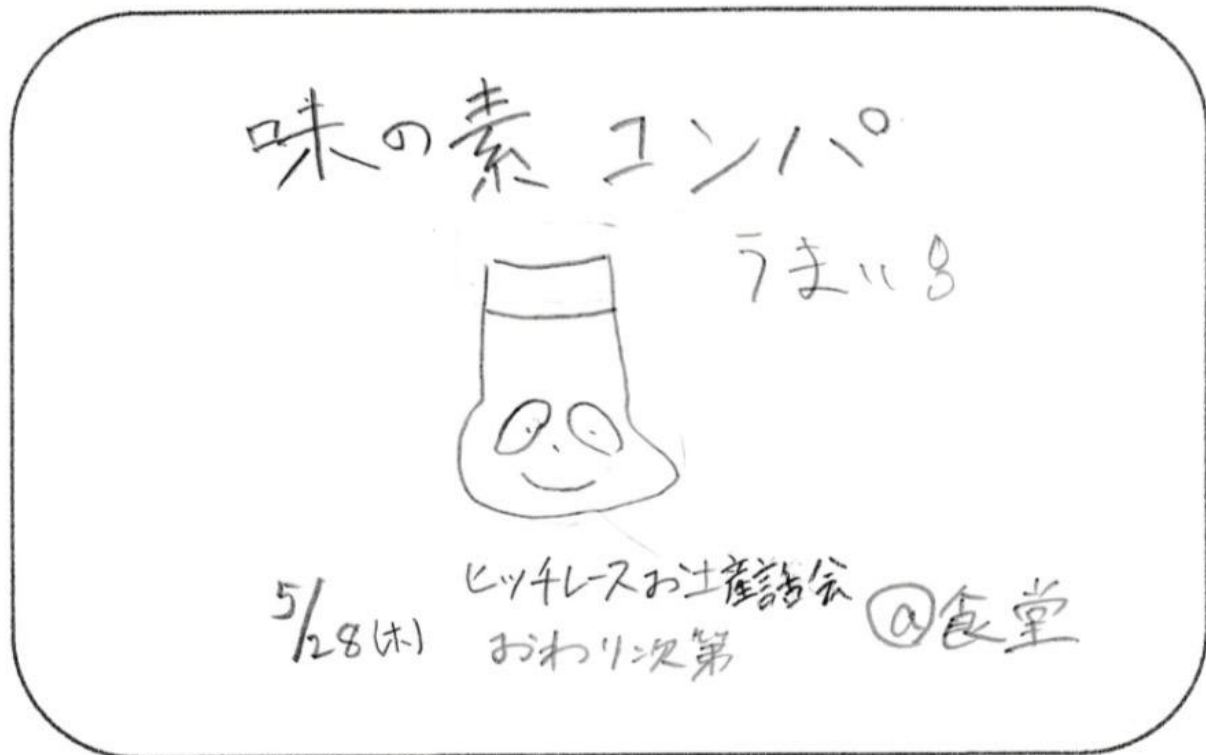 味の素 コンパ
うまい
5/28(木)
ヒッチレースお土産話会
おわり次第
@食堂